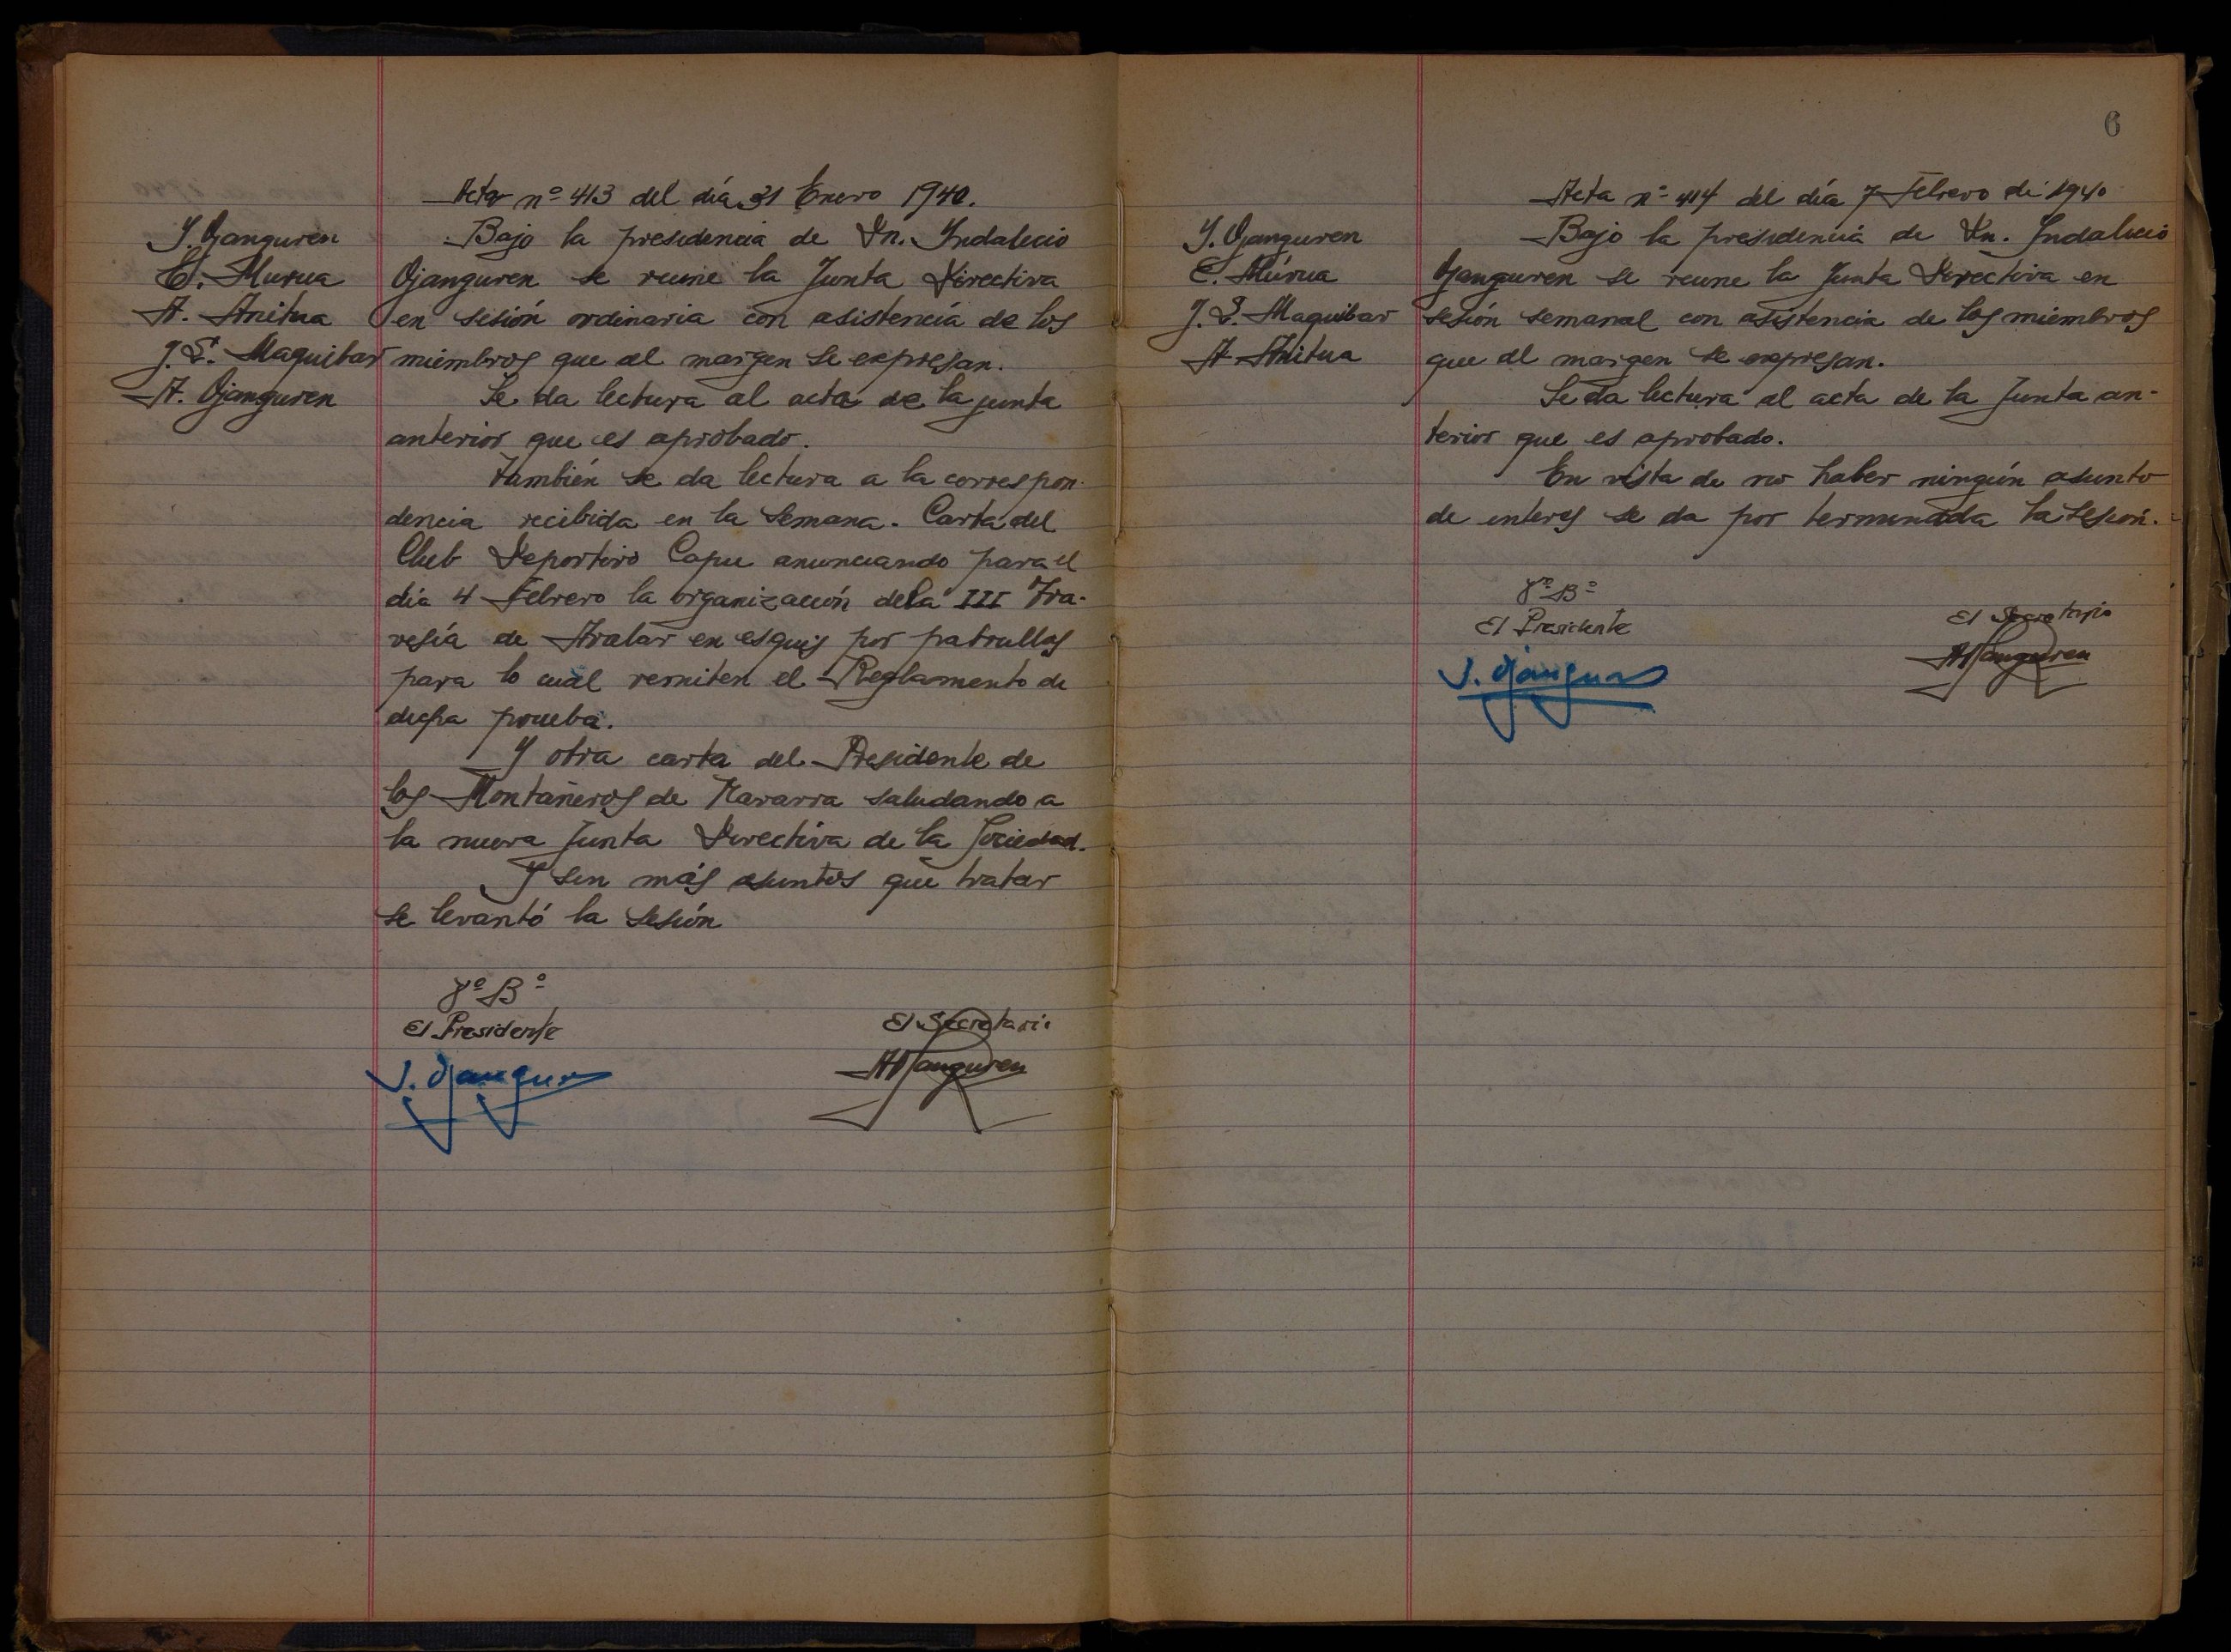 Acta nº 413 del día 31 Enero 1940.
I. Ojanguren
C. Murua
A. Anitua
J. L. Maquibar
A. Ojanguren
Bajo la presidencia de Dn. Indalecio
Ojanguren se reune la Junta Directiva
en sesión ordinaria con asistencia de los
miembros que al margen se expresan.
Se da lectura al acta de la junta
anterior que es aprobado.
También se da lectura a la correspon-
dencia recibida en la semana. Carta del
Club Deportivo Capu anunciando para el
día 4 Febrero la organización de la III Tra-
vesía de Aralar en esquis por patrullas
para lo cual remiten el Reglamento de
dicha prueba.
Y otra carta del Presidente de
los Montañeros de Navarra saludando a
la nueva Junta Directiva de la Sociedad.
Y sin más asuntos que tratar
se levantó la sesión
Vº Bº
El Presidente
I. Ojanguren
El Secretario
A Ojanguren
6
Acta nº 414 del día 7 Febrero de 1940
I. Ojanguren
C. Múrua
J. L. Maquibar
A. Anitua
Bajo la presidencia de Dn. Indalecio
Ojanguren se reune la Junta Directiva en
sesión semanal con asistencia de los miembros
que al margen se expresan.
Se da lectura al acta de la Junta an-
terior que es aprobado.
En vista de no haber ningún asunto
de interes se da por terminada la sesión.
Vº Bº
El Presidente
I. Ojanguren
El Secretario
A Ojanguren